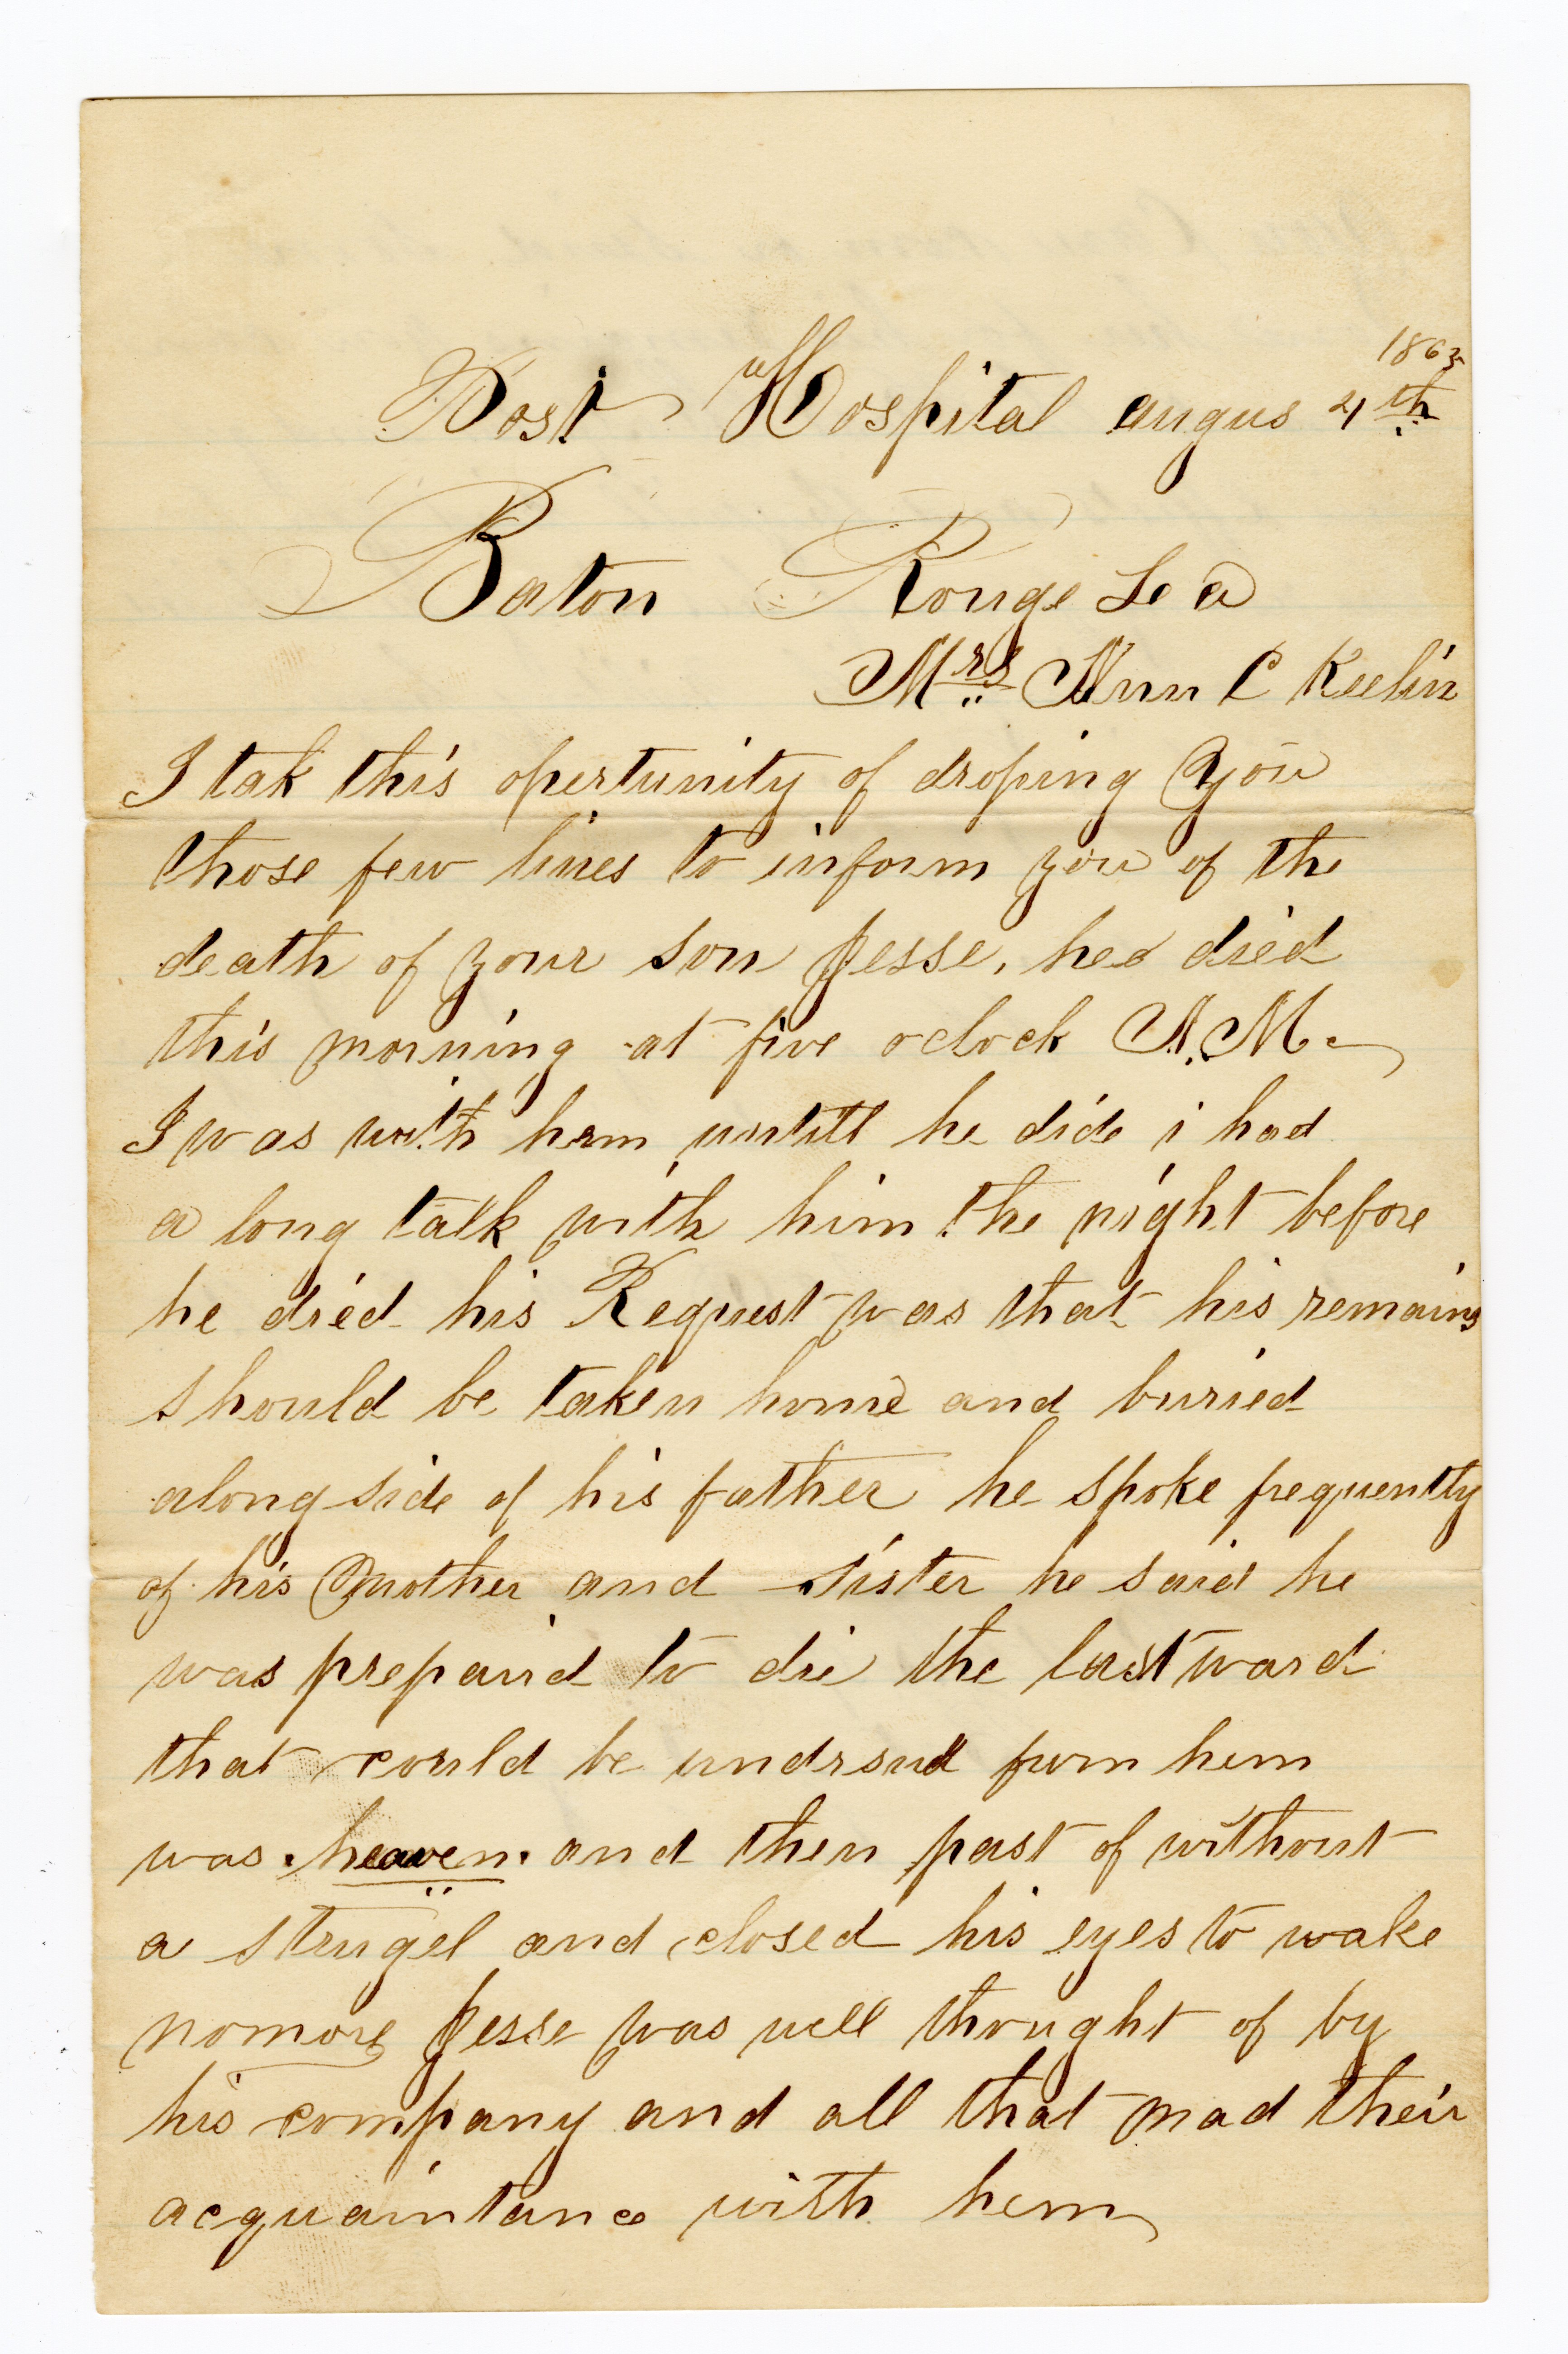 1863
Post Hospital augus 4th
Baton Rouge Le a
Mrs Ann C Keelin
I tak this opertunity of droping you
those few lines to inform you of the
death of your son Jesse, he died
this morning at five oclock A.M.
I was with hem untill he dide i had
a long talk with him the night before
he died his Request was that his remains
should be taken home and buried
along side of his father he spoke frequently
of his mother and sister he said he
was prepaird to die the last word
that could be undrsud furm hem
was heaven. and then past of without
a strugel and closed his eyes to wake
nomore Jesse was well thought of by
his company and all that mad their
acquaintance with hem